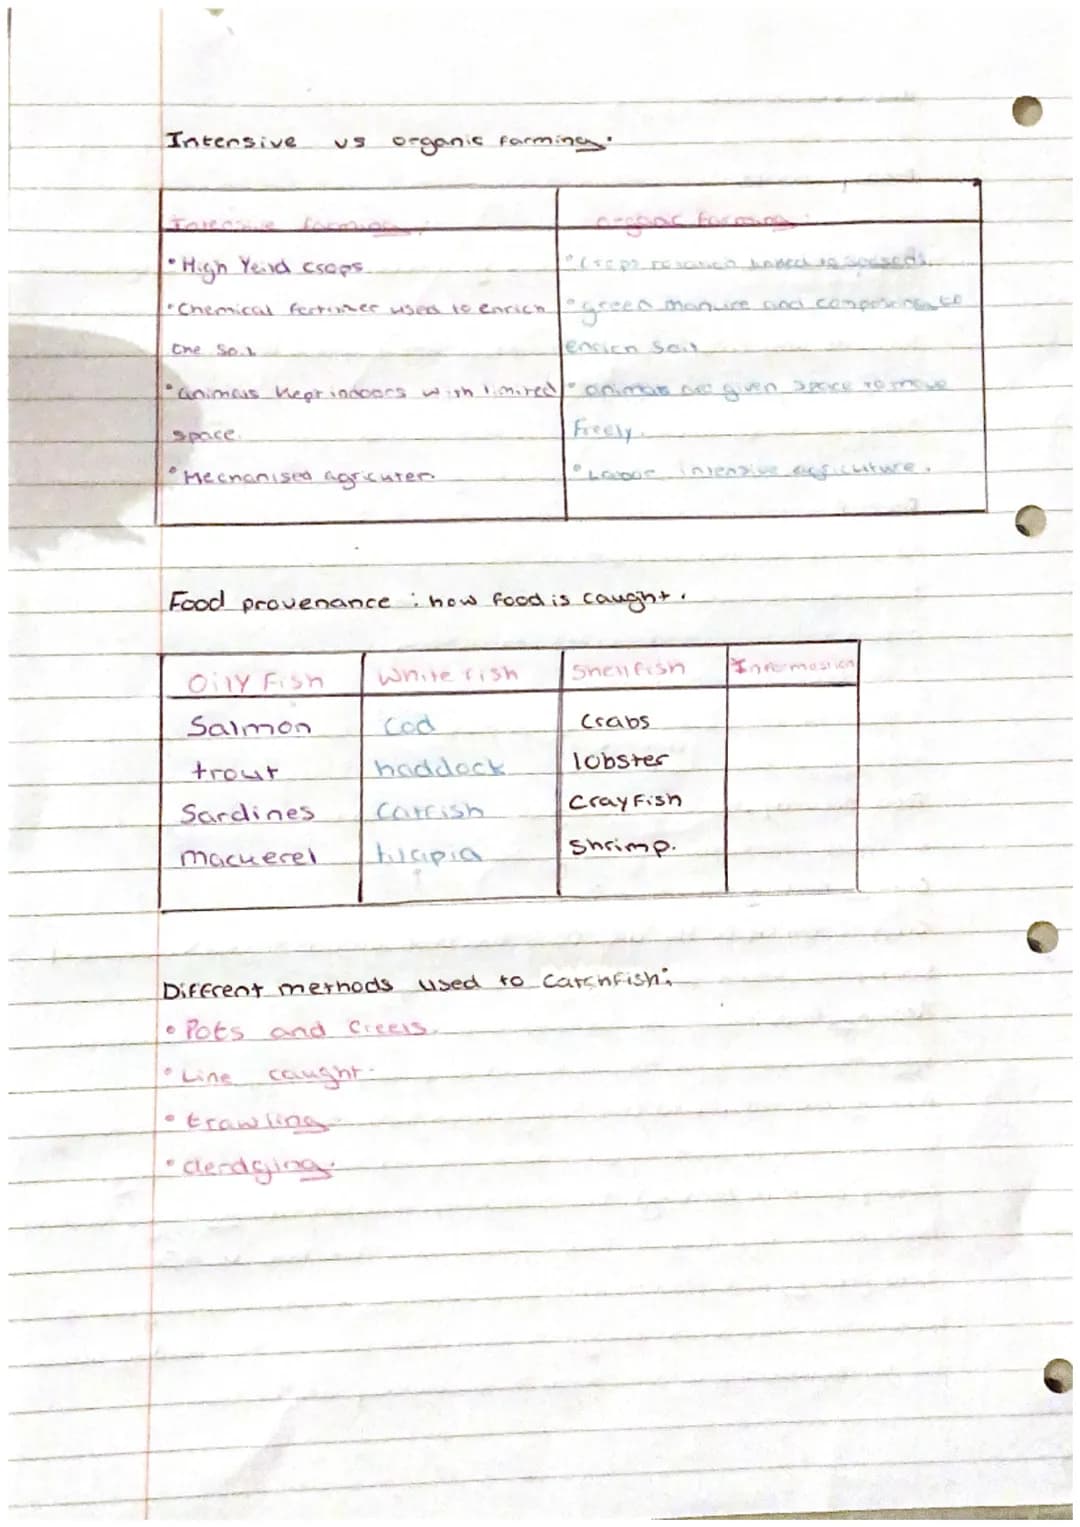 Intensive vs organic farming.
Intensive farming. organic farming.
• High Yeild crops • Crops rotation based to
• Chemical fertilizer used to enrich • green manure and composting to
the soil enrich soil
• animals kept indoors with limited • animals are given space to move
space. freely.
• Mechanised agricuter. • Labour intensive agricuture.
Food provenance : how food is caught.
Oily Fish White fish Shellfish Information
Salmon Cod Crabs
trout haddock lobster
Sardines Catfish CrayFish
mackerel tilapia Shrimp.
Different methods used to catch fish:
• Pots and Creels.
• Line caught.
• trawling.
• derdging.